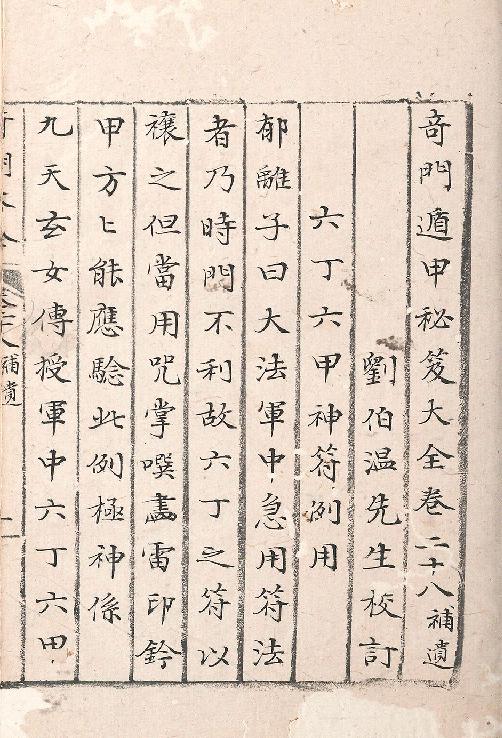 奇門遁甲秘笈大全卷二十八補遺
劉伯温先生校訂
六丁六甲神符例用
郁離子曰大法軍中急用符法
者乃時門不利故六丁之符以
禳之但當用咒掌噀畵雷印鈐
甲方㠯能應驗此例極神係
九天玄女傳授軍中六丁六甲
補遺